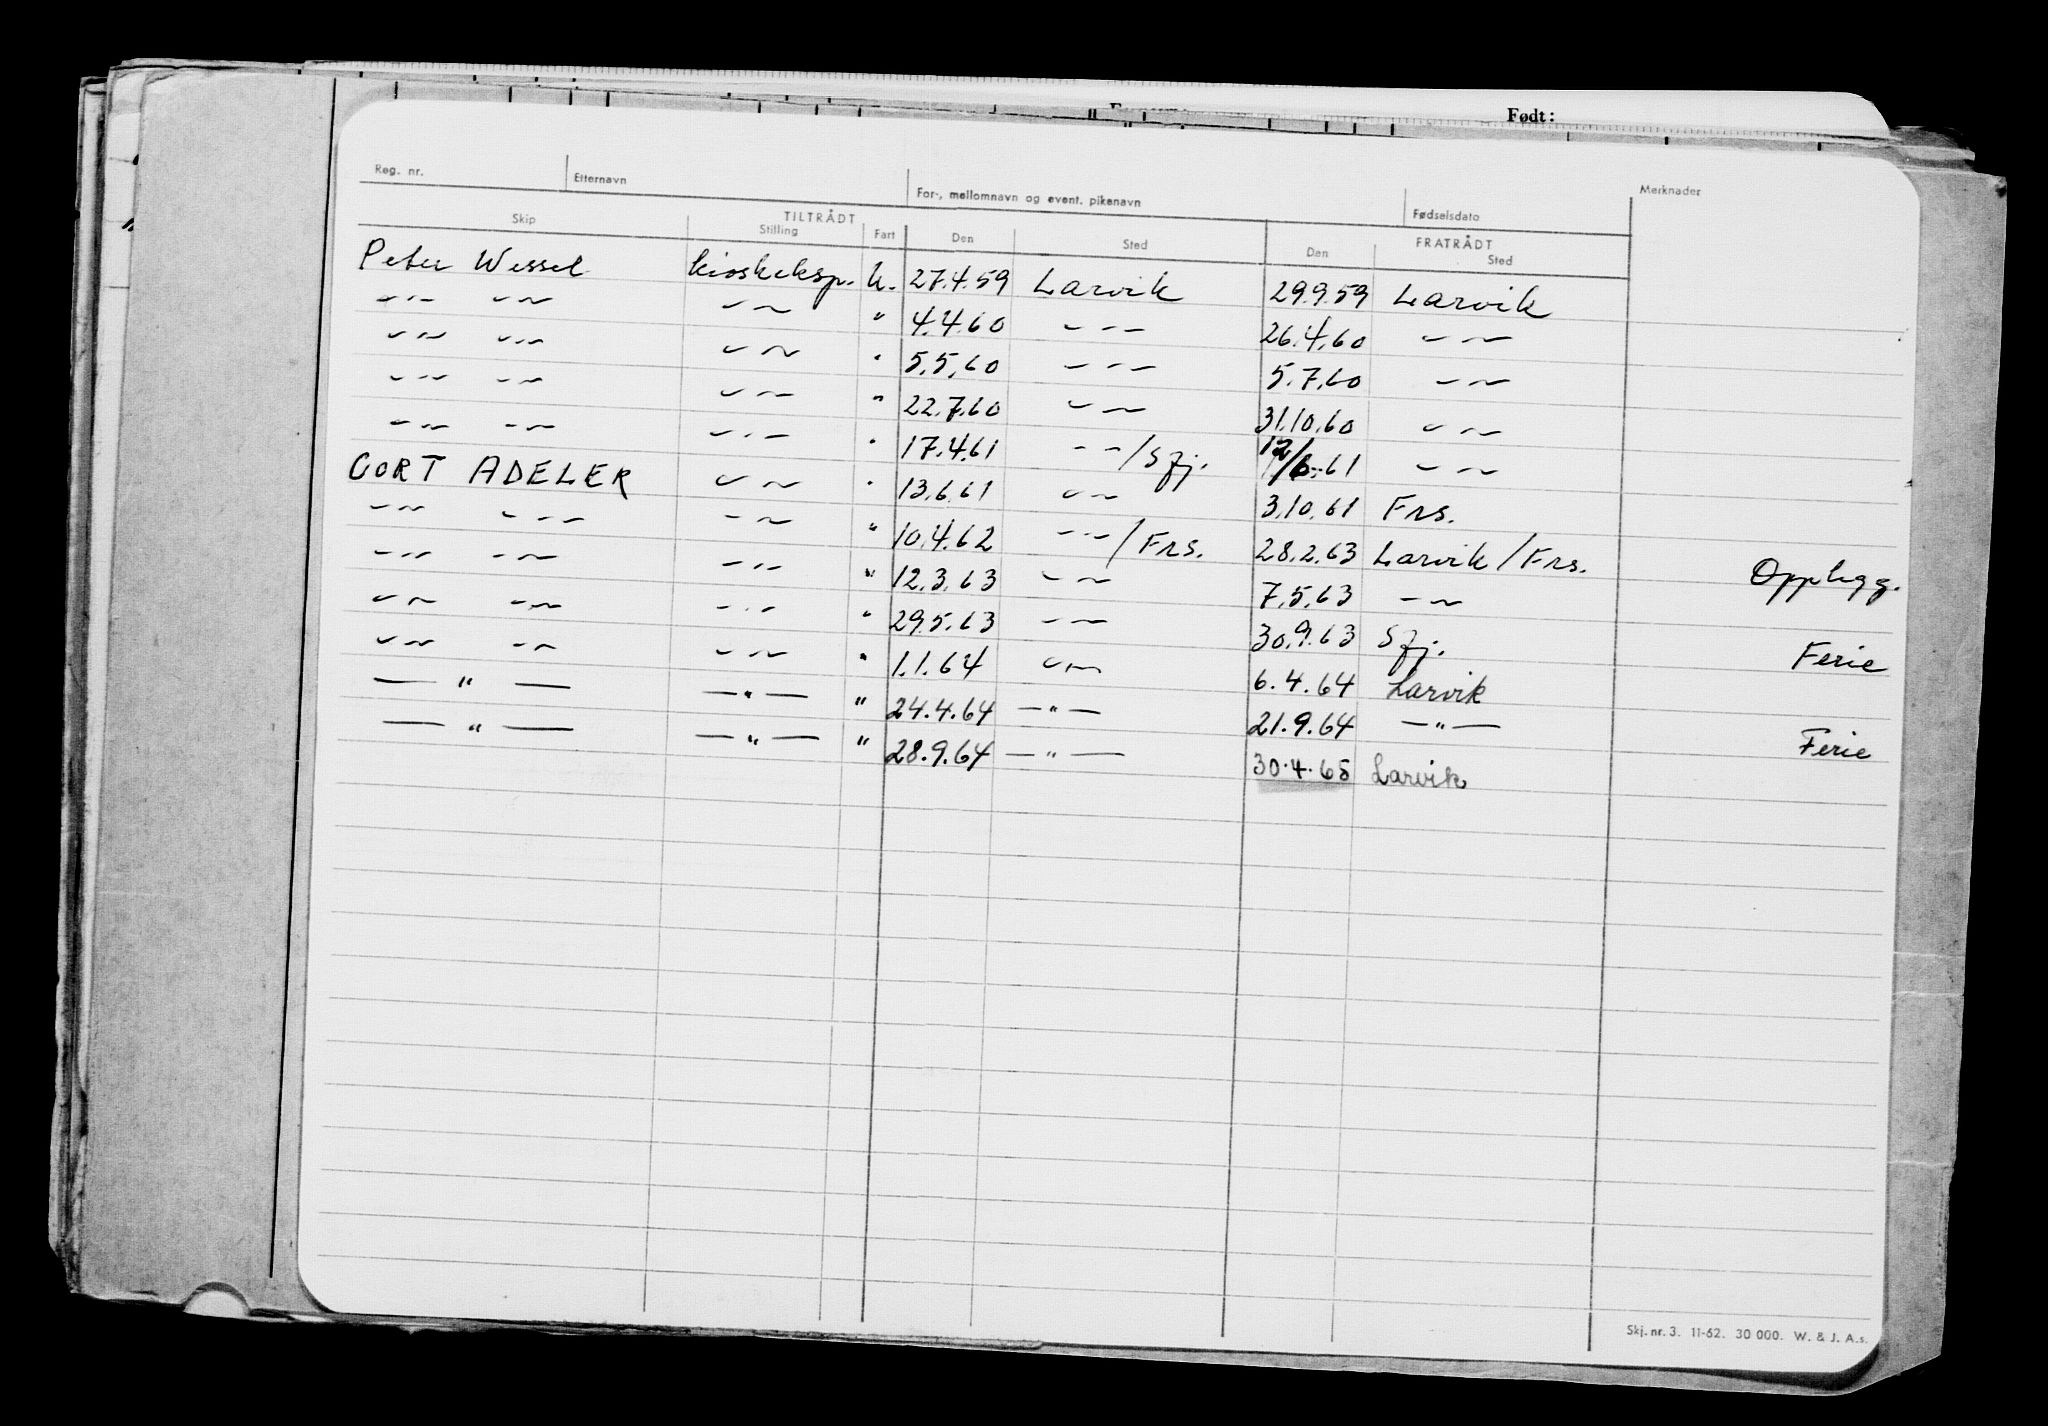 Født:
Reg. nr. Etternavn For-, mellomnavn og event. pikenavn Fødselsdato Merknader
TILTRÅDT FRATRÅDT
Skip Stilling Fart Den Sted Den Sted
Peter Wessel kioskeksp. u. 27.4.59 Larvik 29.9.59 Larvik
-"- -"- -"- " 4.4.60 -"- 26.4.60 -"-
-"- -"- -"- " 5.5.60 -"- 5.7.60 -"-
-"- -"- -"- " 22.7.60 -"- 31.10.60 -"-
-"- -"- -"- " 17.4.61 -"-/Sfj. 12/6-61 -"-
CORT ADELER -"- " 13.6.61 -"- 3.10.61 Frs.
-"- -"- -"- " 10.4.62 -"-/Frs. 28.2.63 Larvik/Frs. Opplegg.
-"- -"- -"- " 12.3.63 -"- 7.5.63 -"-
-"- -"- -"- " 29.5.63 -"- 30.9.63 Sfj. Ferie
-"- -"- -"- " 1.1.64 -"- 6.4.64 Larvik
-"- -"- " 24.4.64 -"- 21.9.64 -"- Ferie
-"- -"- " 28.9.64 -"- 30.4.65 Larvik
Skj. nr. 3. 11-62. 30 000. W. & J. A.s.